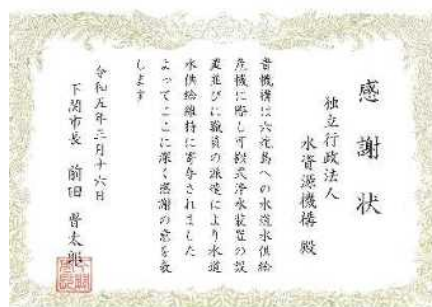 感謝状
独立行政法人
水資源機構 殿
貴機構は六連島への水道水供給
危機に際し可搬式浄水装置の設
置並びに職員の派遣により水道
水供給維持に寄与されました
よってここに深く感謝の意を表
します
令和五年三月十六日
下関市長 前田晋太郎